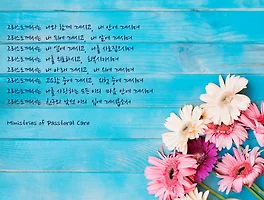 그리스도께서는 나와 함께 계시고, 내 안에 계시며
그리스도께서는 내 뒤에 계시고, 내 앞에 계시며
그리스도께서는 내 옆에 계시고, 나를 사로잡으시며
그리스도께서는 나를 위로하시고, 회복시키시며
그리스도께서는 내 아래 계시고, 내 위에 계시며
그리스도께서는 고요함 중에 계시고, 위험 중에 계시며
그리스도께서는 나를 사랑하는 모든 이의 마음 안에 계시며
그리스도께서는 친구와 낯선 이의 입에 계시옵소서
Ministries of Passtoral Care